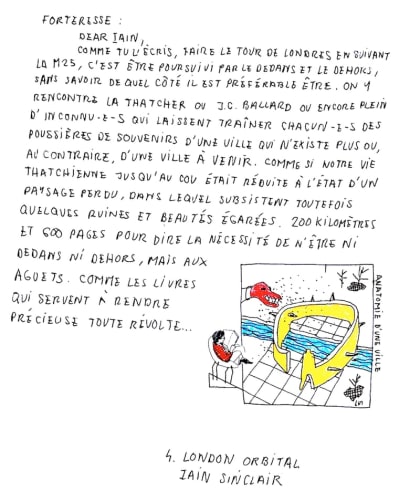 FORTERESSE :
DEAR IAIN,
COMME TU L'ÉCRIS, FAIRE LE TOUR DE LONDRES EN SUIVANT
LA M25, C'EST ÊTRE POURSUIVI PAR LE DEDANS ET LE DEHORS,
SANS SAVOIR DE QUEL CÔTÉ IL EST PRÉFÉRABLE ÊTRE. ON Y
RENCONTRE LA THATCHER OU J.G. BALLARD OU ENCORE PLEIN
D'INCONNU-E-S QUI LAISSENT TRAÎNER CHACUN-E-S DES
POUSSIÈRES DE SOUVENIRS D'UNE VILLE QUI N'EXISTE PLUS OU,
AU CONTRAIRE, D'UNE VILLE À VENIR. COMME SI NOTRE VIE
THATCHIENNE JUSQU'AU COU ÉTAIT RÉDUITE À L'ÉTAT D'UN
PAYSAGE PERDU, DANS LEQUEL SUBSISTENT TOUTEFOIS
QUELQUES RUINES ET BEAUTÉS ÉGARÉES. 200 KILOMÈTRES
ET 600 PAGES POUR DIRE LA NÉCESSITÉ DE N'ÊTRE NI
DEDANS NI DEHORS, MAIS AUX
AGUETS. COMME LES LIVRES
QUI SERVENT À RENDRE
PRÉCIEUSE TOUTE RÉVOLTE...
ANATOMIE D'UNE VILLE
4. LONDON ORBITAL
IAIN SINCLAIR